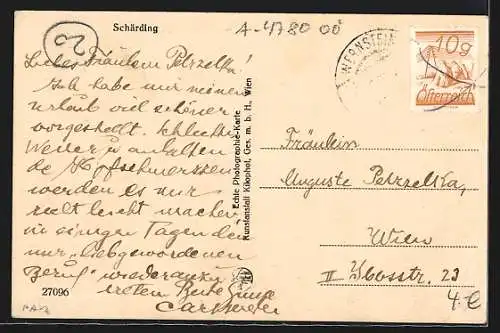 Schärding
A-4780 00
23
Liebes Fräulein Petzelka!
Ich habe mir meinen
Urlaub viel schöner
vorgestellt. Schlechtes
Wetter u. anhalten
de Kopfschmerzen
werden es mir
recht leicht machen
in einigen Tagen den
mir „liebgewordenen
Beruf" wiederanzu
treten. Beste Grüße
27096
Echte Photographie-Karte
Kunstanstalt Kilophot, Ges. m. b. H., Wien
WERNSTEIN
10g
Österreich
Fräulein
Auguste Petzelka,
Wien
II 23
4.-€